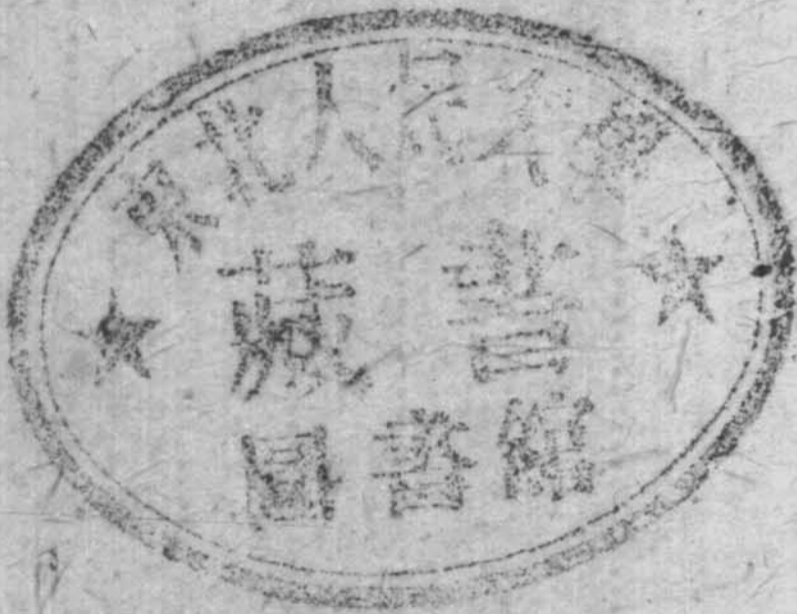 東北人民大學
藏書
圖書館